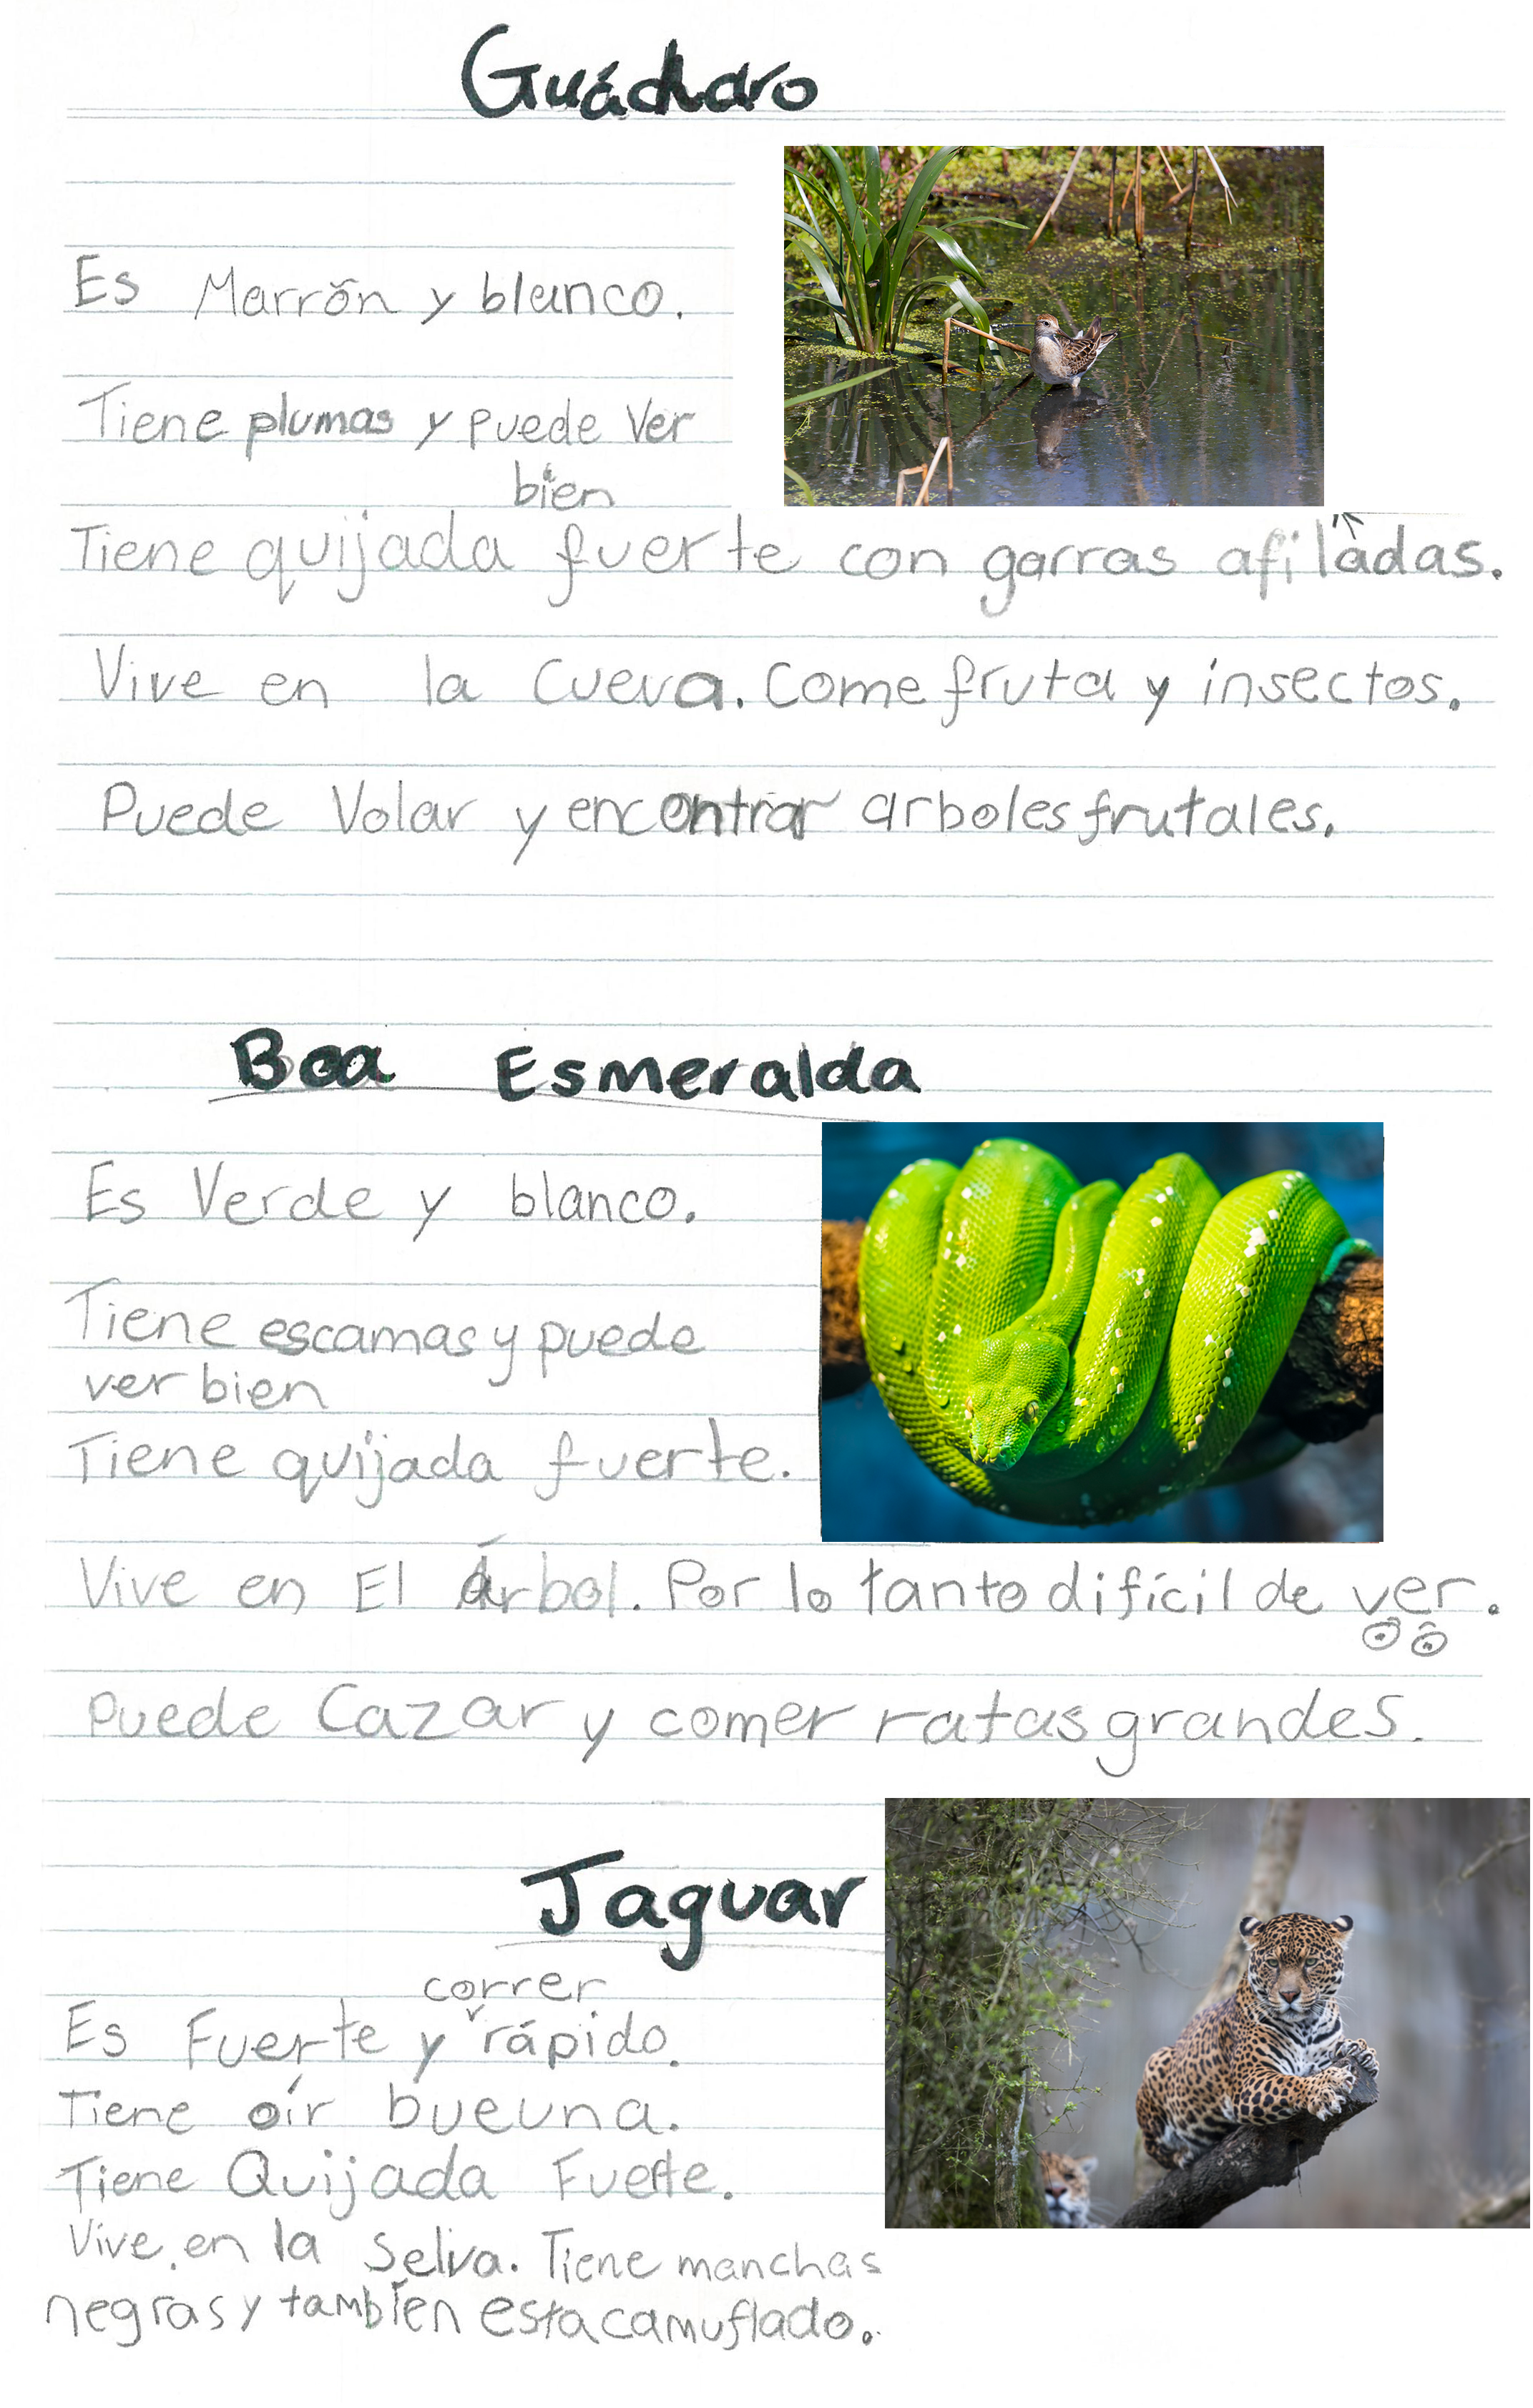 Guácharo
Es Marrón y blanco.
Tiene plumas y puede ver
bien
Tiene quijada fuerte con garras afiladas.
Vive en la Cueva. Come fruta y insectos.
Puede Volar y encontrar arboles frutales.
Boa Esmeralda
Es Verde y blanco.
Tiene escamas y puede
ver bien
Tiene quijada fuerte.
Vive en El árbol. Por lo tanto difícil de ver.
Puede Cazar y comer ratas grandes.
Jaguar
correr
Es Fuerte y rápido.
Tiene oír bueuna.
Tiene Quijada Fuerte.
Vive en la Selva. Tiene manchas
negras y también esta camuflado.